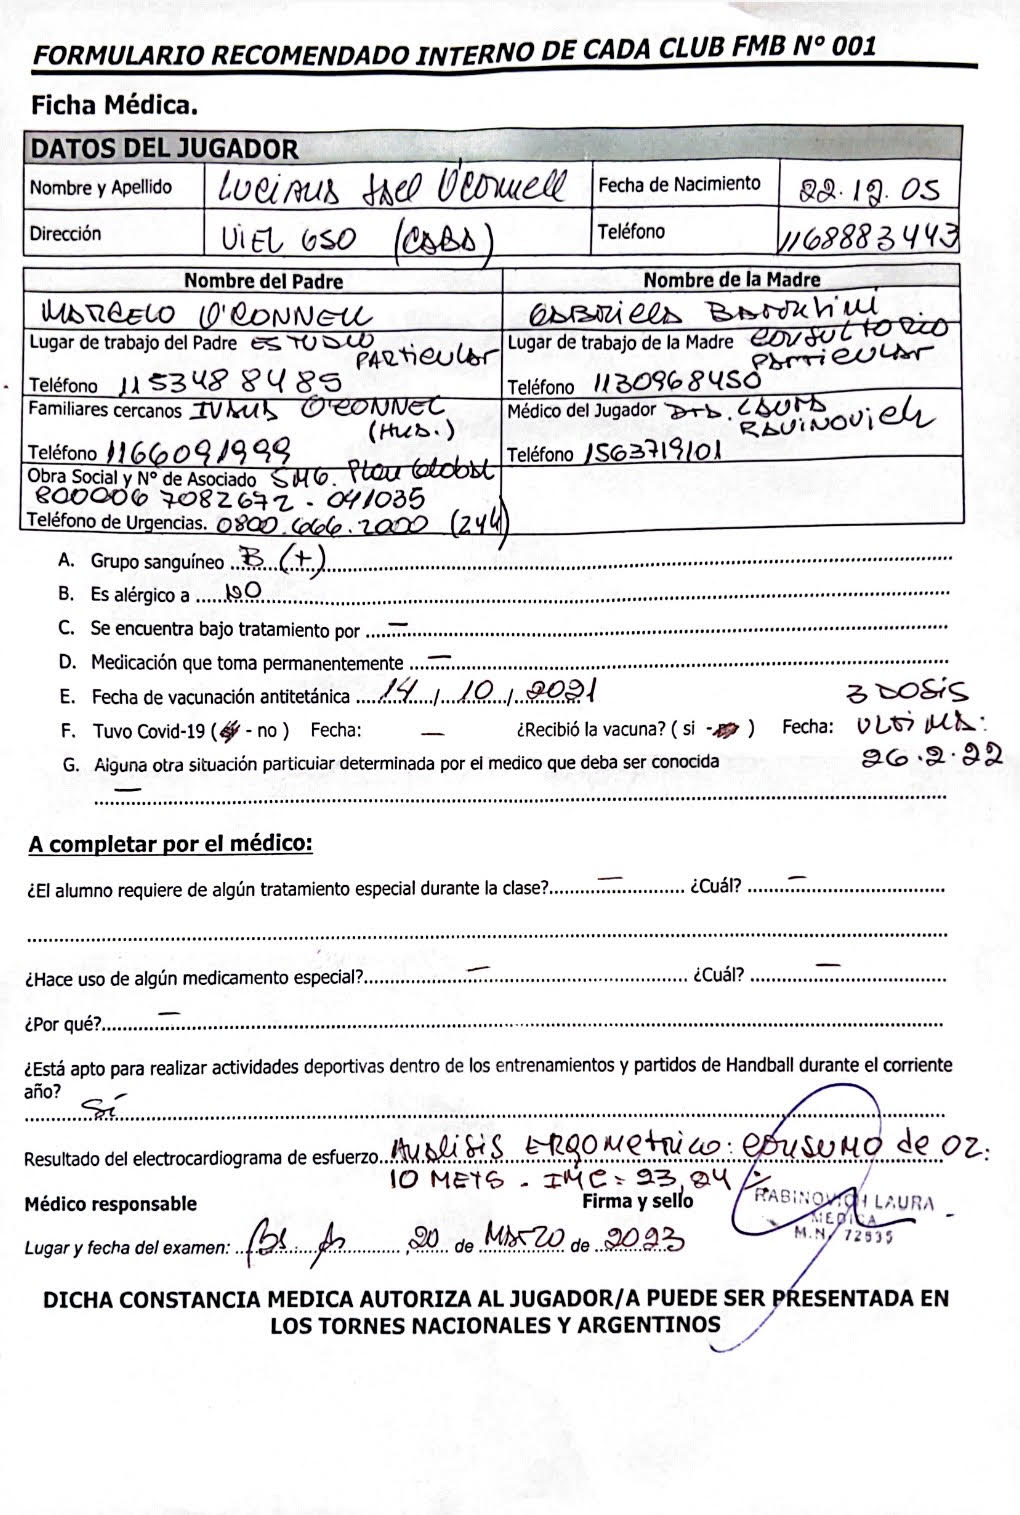 FORMULARIO RECOMENDADO INTERNO DE CADA CLUB FMB Nº 001
Ficha Médica.
DATOS DEL JUGADOR
Nombre y Apellido LUCIANA Itsel O'Connell Fecha de Nacimiento 22.12.05
Dirección VIEL 650 (CABA) Teléfono 1168883443
Nombre del Padre Nombre de la Madre
MARCELO O'CONNELL GABRIELA
Lugar de trabajo del Padre ESTUDIO PARTICULAR Lugar de trabajo de la Madre CONSULTORIO PARTICULAR
Teléfono 1153488485 Teléfono 1130968450
Familiares cercanos O'CONNEL (HNA.) Médico del Jugador DRA. LAURA RAVINOVICH
Teléfono 1166091999 Teléfono 1563719101
Obra Social y Nº de Asociado SMG. Plan Global
800006 7082672 - 041035
Teléfono de Urgencias. 0800.666.2000 (24H)
A. Grupo sanguíneo B (+)
B. Es alérgico a NO
C. Se encuentra bajo tratamiento por —
D. Medicación que toma permanentemente —
E. Fecha de vacunación antitetánica 14 / 10 / 2021 3 DOSIS
F. Tuvo Covid-19 ( - no ) Fecha: — ¿Recibió la vacuna? ( si - ) Fecha: ULTIMA:
G. Alguna otra situación particular determinada por el medico que deba ser conocida 26.2.22
—
A completar por el médico:
¿El alumno requiere de algún tratamiento especial durante la clase? — ¿Cuál? —
¿Hace uso de algún medicamento especial? — ¿Cuál? —
¿Por qué? —
¿Está apto para realizar actividades deportivas dentro de los entrenamientos y partidos de Handball durante el corriente
año? Sí
Resultado del electrocardiograma de esfuerzo Analisis ERGOMetrico: CONSUMO de O2:
10 METS - IMC: 23,24 %
Médico responsable Firma y sello RABINOVICH LAURA
MEDICA
M.N. 72535
Lugar y fecha del examen: Bs As, 20 de MARZO de 2023
DICHA CONSTANCIA MEDICA AUTORIZA AL JUGADOR/A PUEDE SER PRESENTADA EN
LOS TORNES NACIONALES Y ARGENTINOS